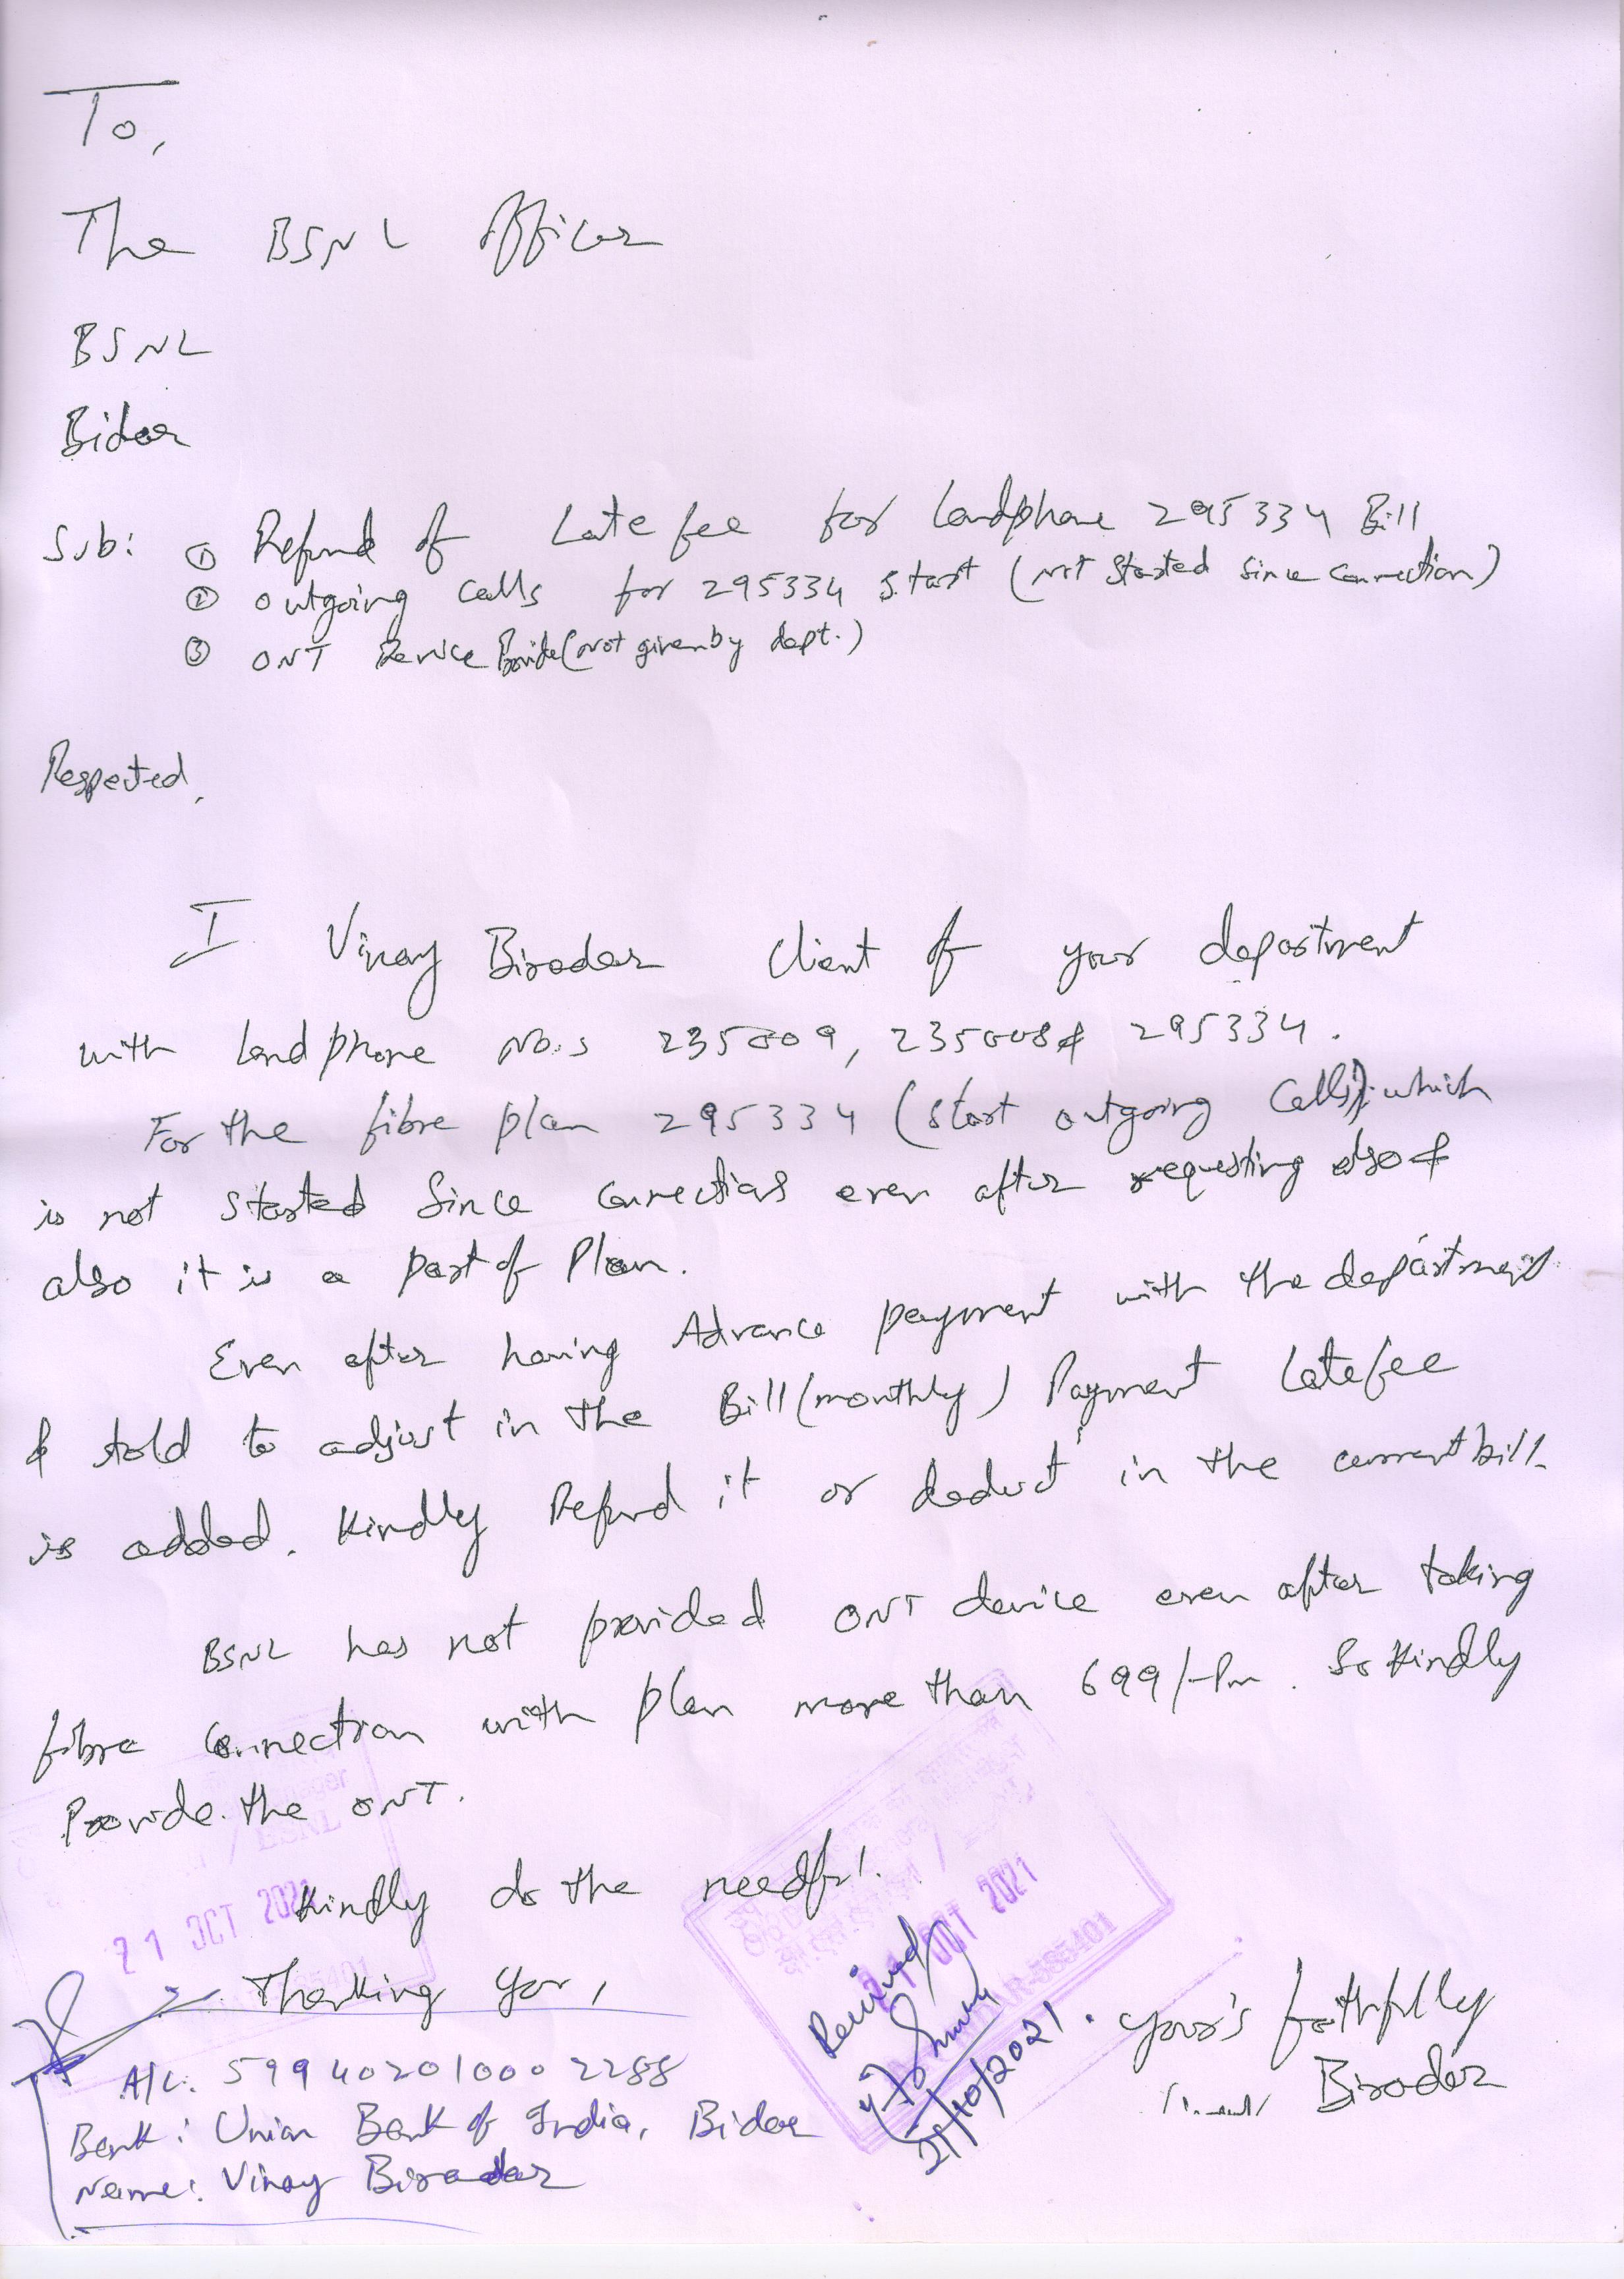 To,
The BSNL Officer
BSNL
Bidar
Sub: ① Refund of Late fee for Landphone 295334 Bill
② Outgoing calls for 295334 Start (Not Started Since Connection)
③ ONT Device Provide (Not given by dept.)
Respected,
I Vinay Biradar Client of your department
with landphone No.s 235009, 235008 & 295334.
For the fibre plan 295334 (Start outgoing Calls) which
is not started Since connections even after requesting also &
also it is a part of Plan.
Even after having Advance payment with the department
& told to adjust in the Bill (monthly) Payment Latefee
is added. Kindly Refund it or deduct in the current bill.
BSNL has not provided ONT device even after taking
fibre Connection with plan more than 699/-Pm. So Kindly
Provide the ONT.
Kindly do the needful.
21 OCT 2021
Thanking You,
Received
21 OCT 2021
BIDAR-585401
21/10/2021.
Your's faithfully
Biradar
A/c. 59940201000 2288
Bank: Union Bank of India, Bidar
Name: Vinay Biradar